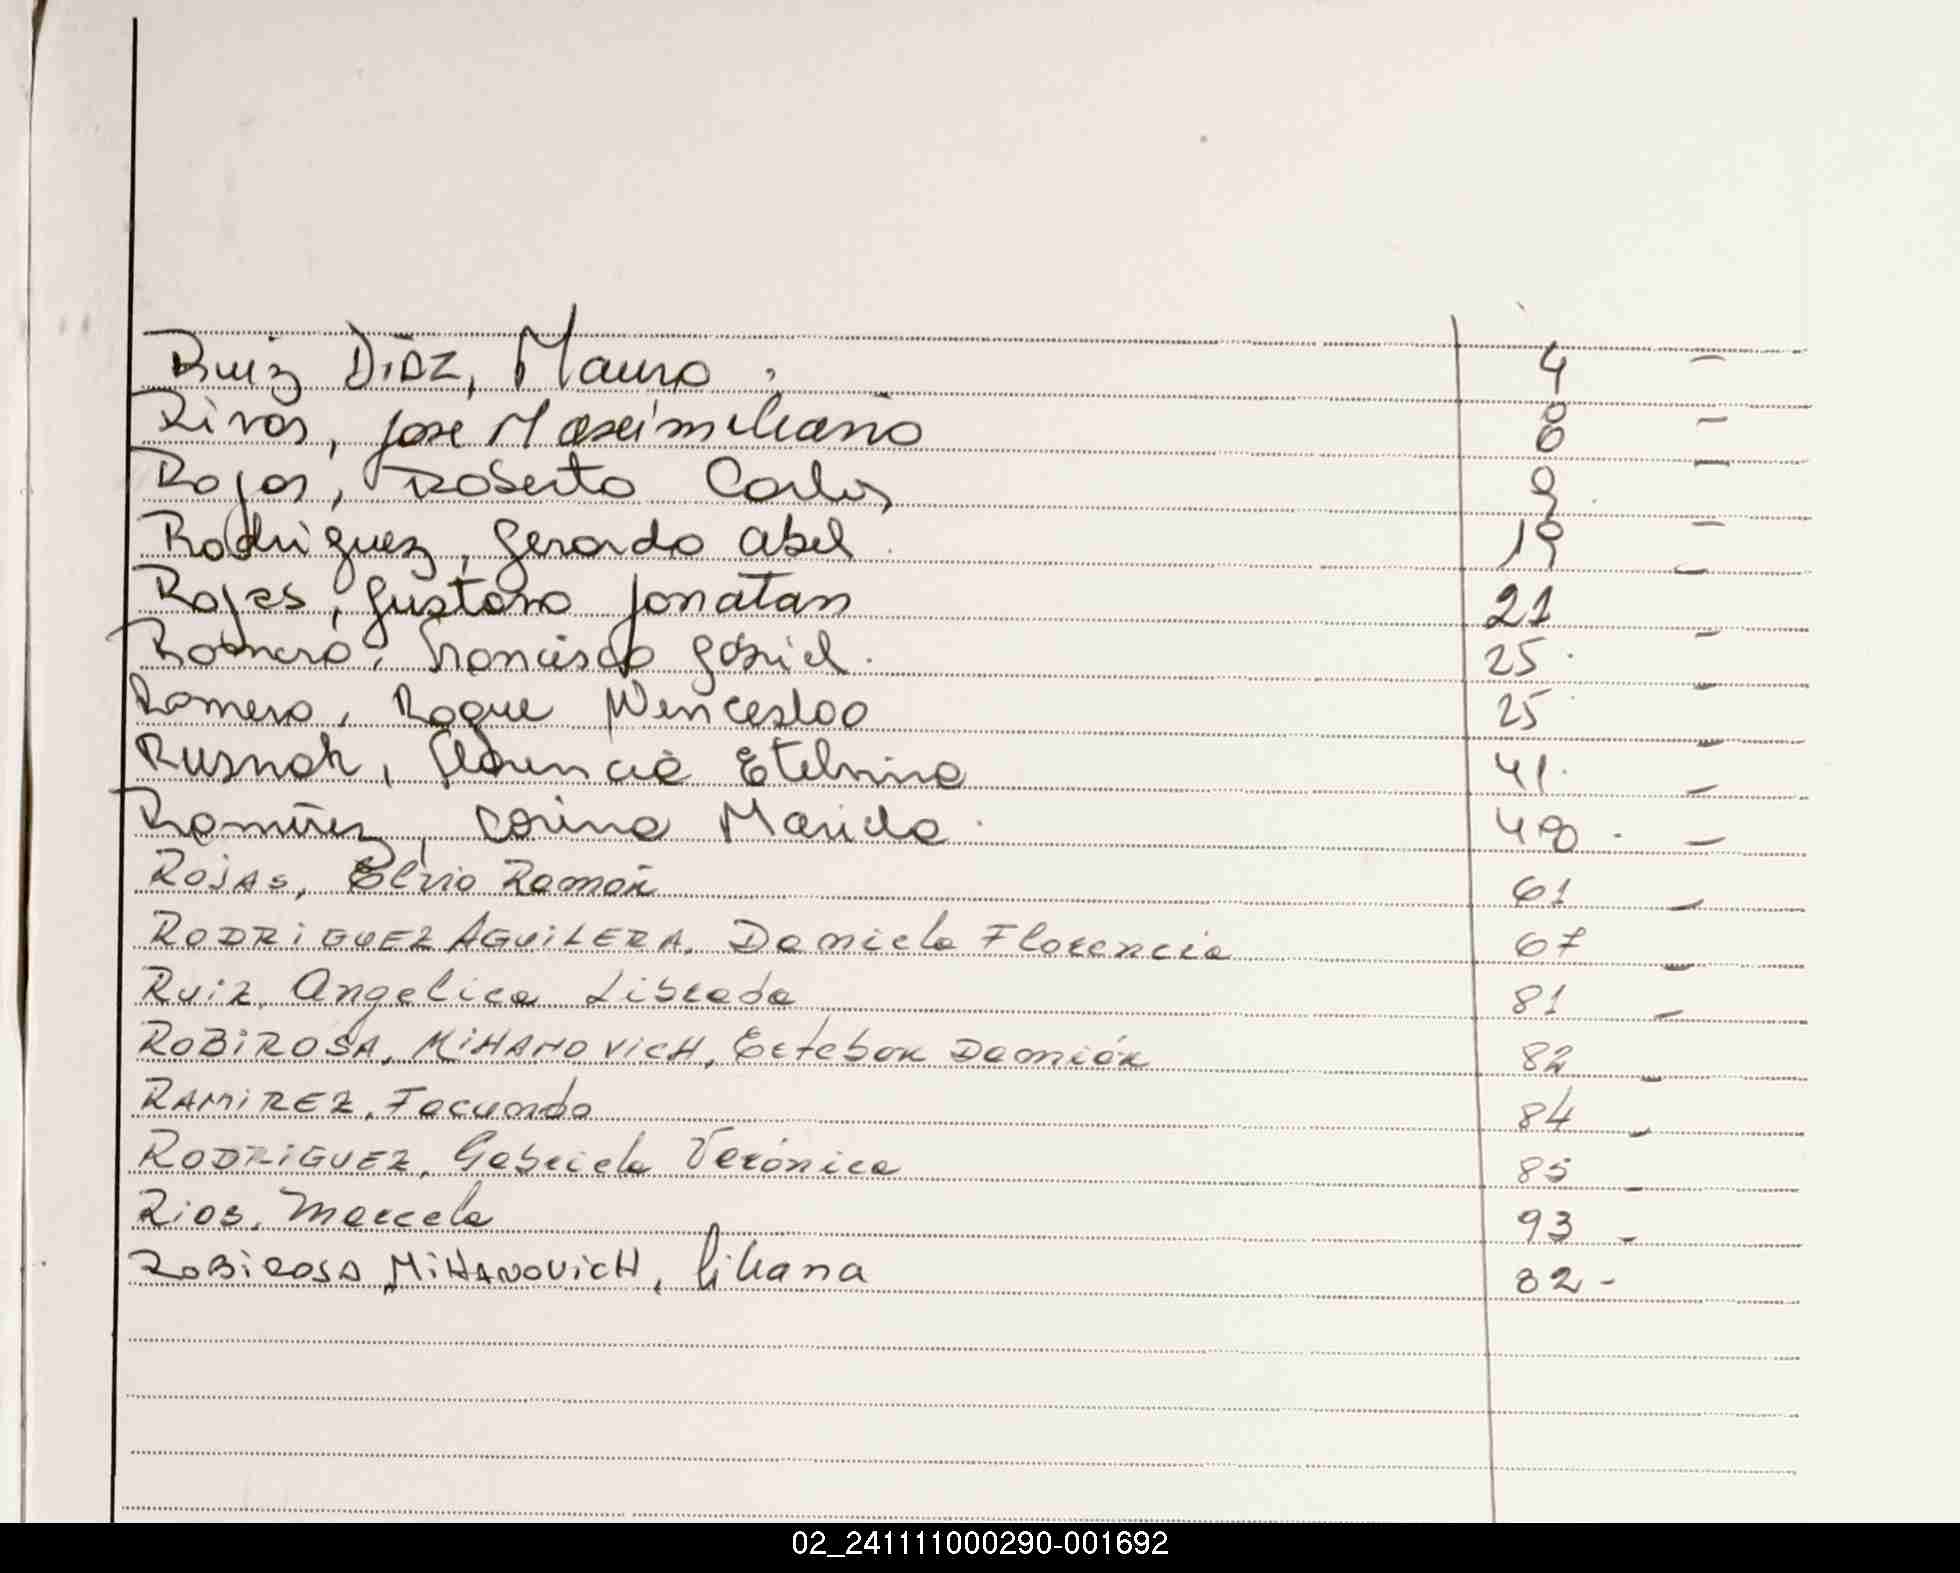 Ruiz Diaz, Mauro 4 -
Rivas, Jose Maximiliano 8 -
Rojas, Roberto Carlos 9 -
Rodriguez, Gerardo Abel 19 -
Rojas, Gustavo Jonatan 21 -
Romero, Francisco Gabriel. 25 -
Romero, Roque Wenceslao 25 -
Rusnak, Florencia Etelvina 41. -
Ramírez, Corina Mariela 48. -
ROJAS, Elvio Ramón 61 -
RODRIGUEZ AGUILERA, Daniela Florencia 67 -
Ruiz, Angelica Librada 81 -
ROBIROSA, MIHANOVICH, Esteban Damián 82 -
RAMIREZ, Facundo 84 -
RODRIGUEZ, Gabriela Verónica 85 -
Rios, Marcela 93 -
ROBIROSA MIHANOVICH, Liliana 82 -
02_241111000290-001692